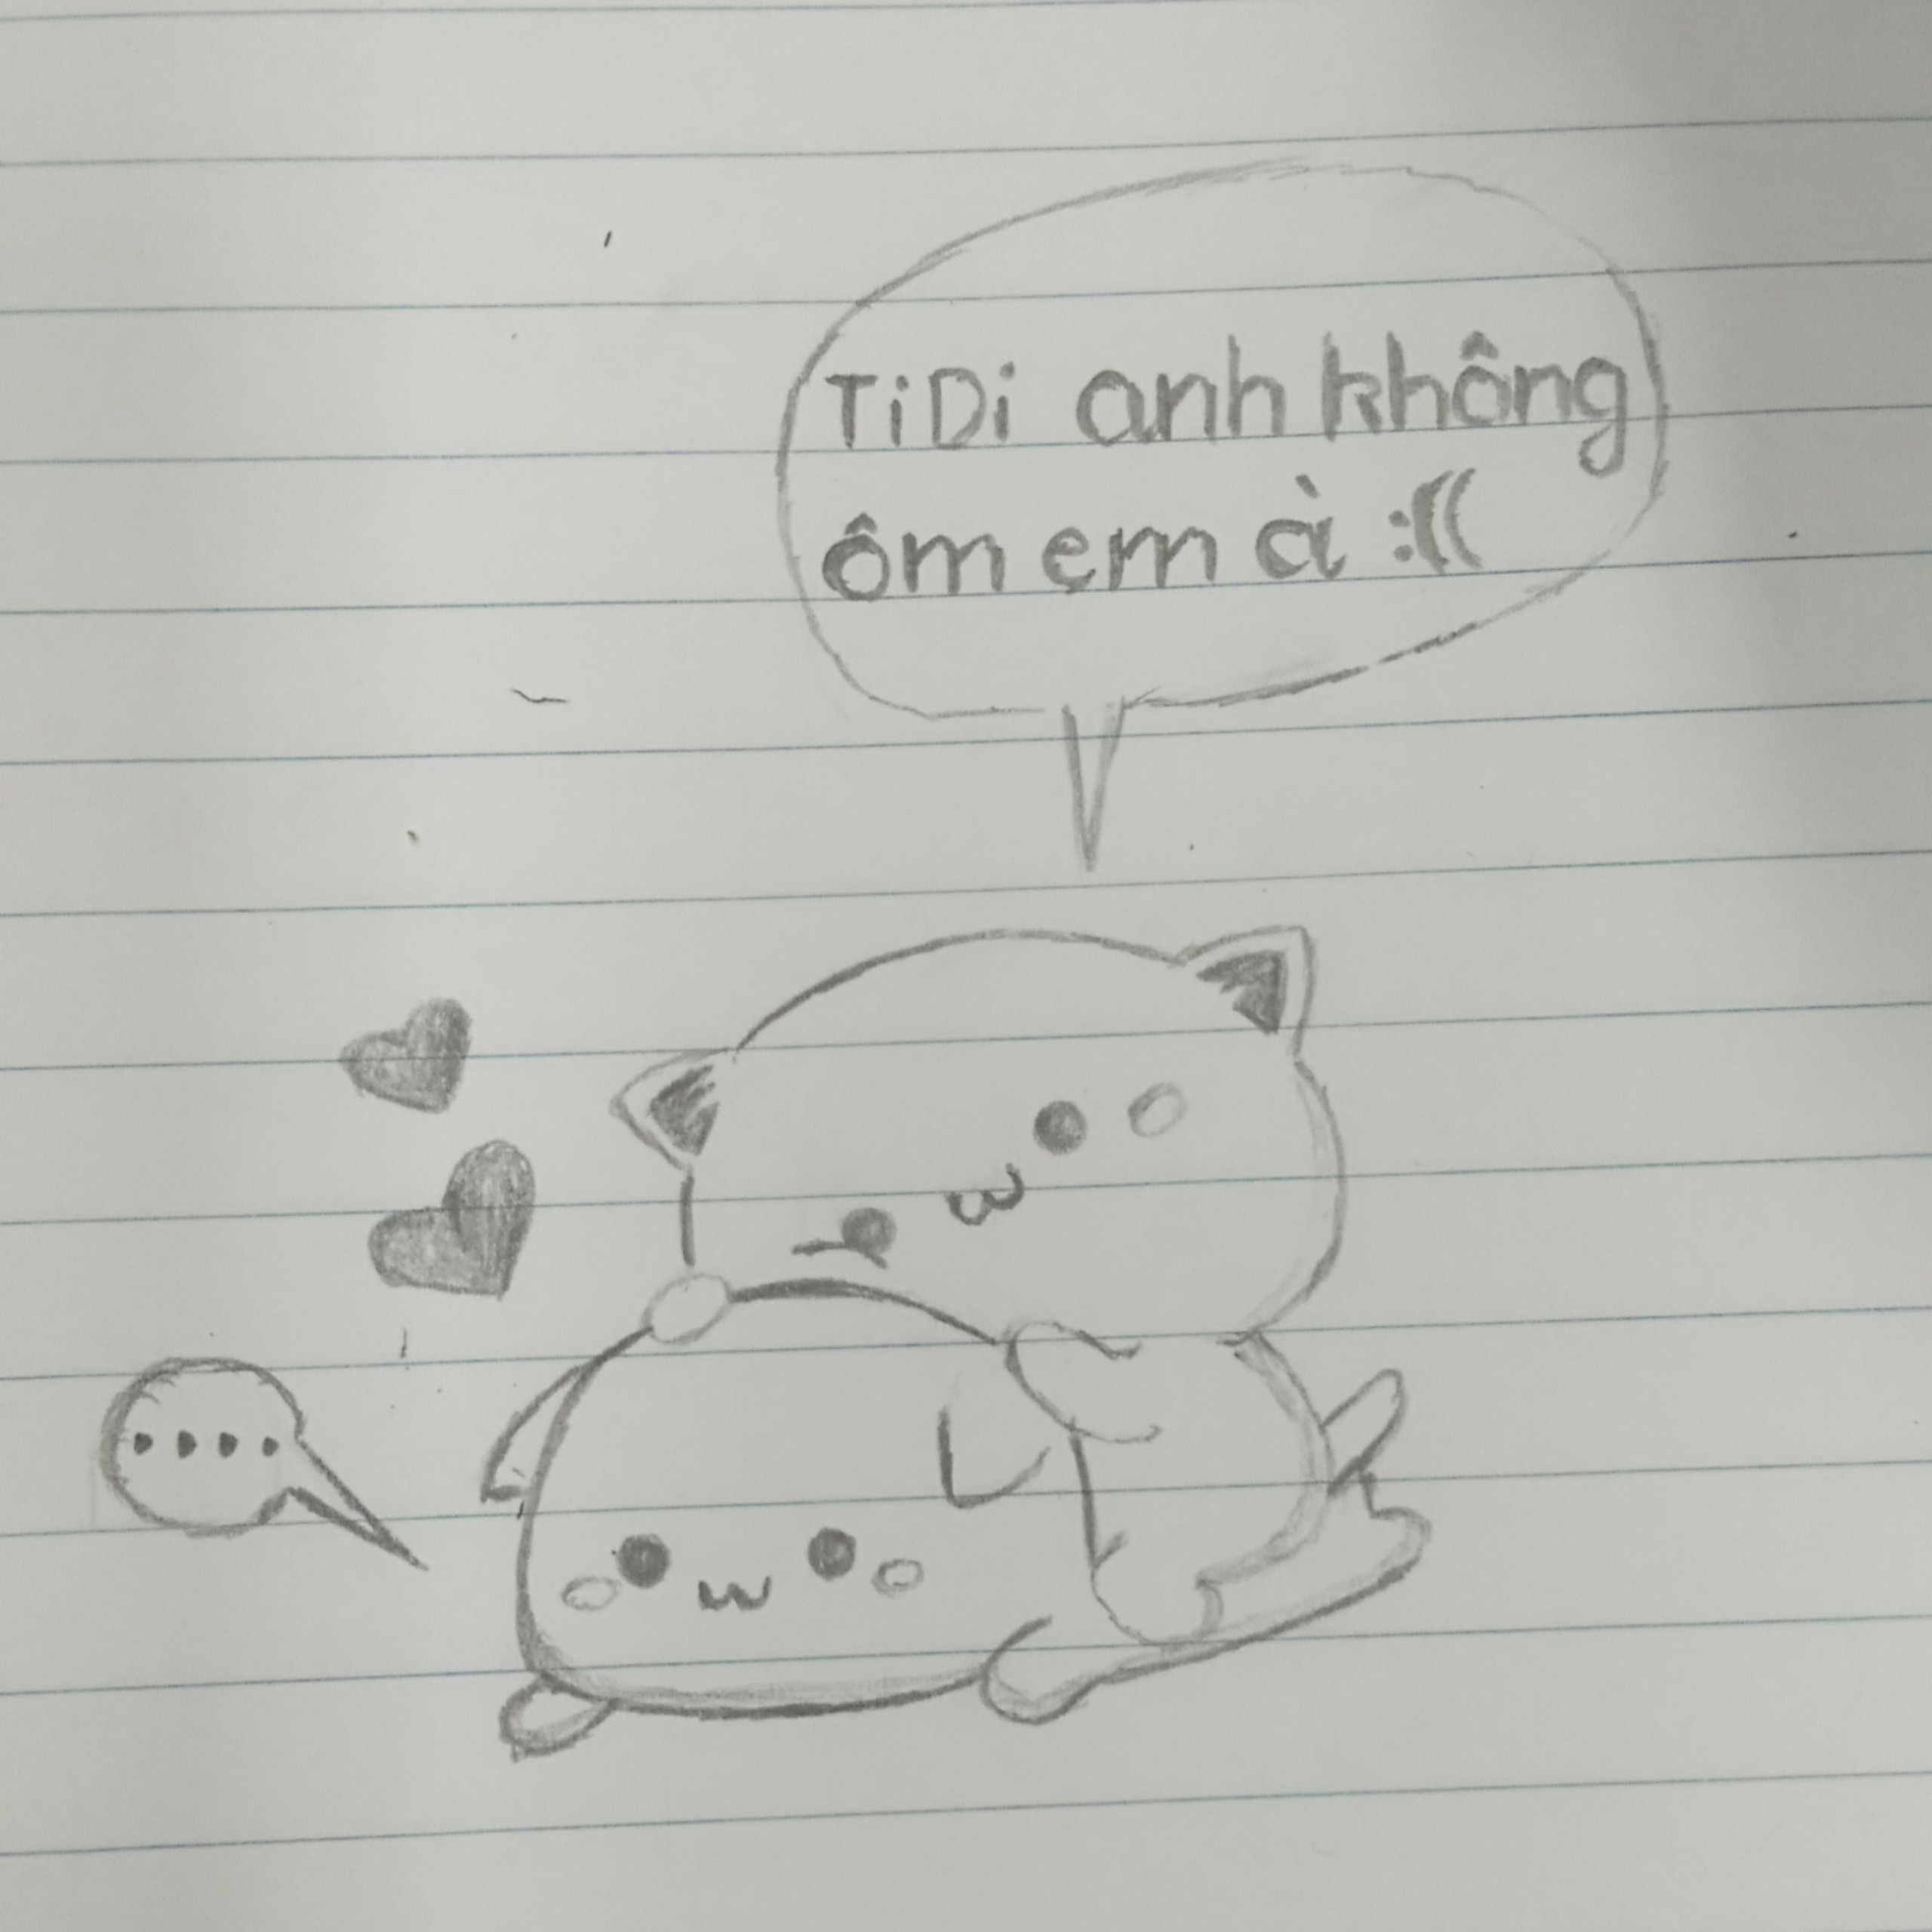 TiDi anh không
ôm em à :((
....